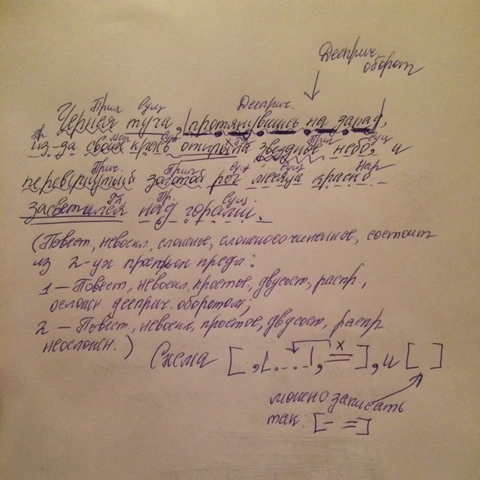 Дееприч.
оборот
Прил Сущ Дееприч.
Черная туча, протянувшись на запад,
Пр. Мест Сущ Гл Прил Сущ
из-за своих краев открыла звездное небо, и
Прич. Сущ Сущ Нар
перевернутый золотой рог месяца красно
Гл Пр. Сущ
засветился над горами.
(Повест, невоскл, сложное, сложносочиненное, состоит
из 2-ух простых пред:
1 – Повест, невоскл, простое, двусост, распр,
ослож дееприч. оборотом;
2 – Повест, невоскл, простое, двусост, распр
неосложн.)
Схема [ ,|...|, x = ], и [ ]
можно записать
так: [- =]